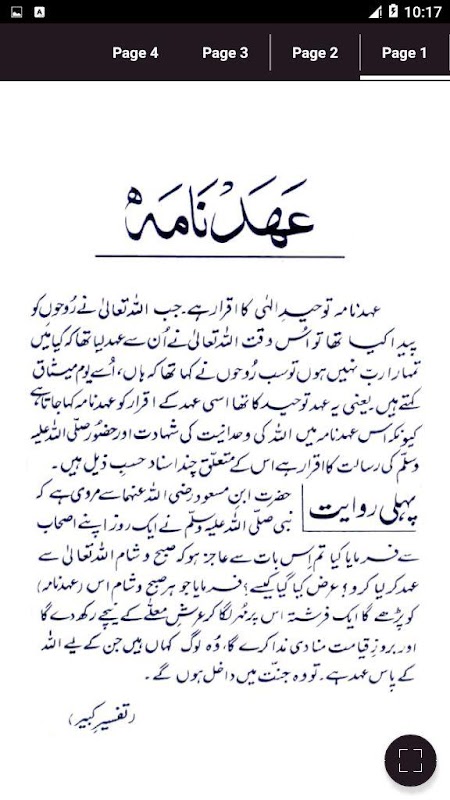 10:17
Page 4 Page 3 Page 2 Page 1
عہد نامہ
عہد نامہ توحیدِ الٰہی کا اقرار ہے۔ جب اللہ تعالیٰ نے رُوحوں کو
پیدا کیا تھا تو اُس وقت اللہ تعالیٰ نے اُن سے عہد لیا تھا کہ کیا مَیں
تمہارا رب نہیں ہوں تو سب رُوحوں نے کہا تھا کہ ہاں، اُسے یومِ میثاق
کہتے ہیں۔ یعنی یہ عہد توحید کا تھا اسی عہد کے اقرار کو عہد نامہ کہا جاتا ہے
کیونکہ اس عہد نامہ میں اللہ کی وحدانیت کی شہادت اور حضور صلّی اللہ علیہ
وسلّم کی رسالت کا اقرار ہے اس کے متعلق چند اسناد حسبِ ذیل ہیں۔
پہلی روایت حضرت ابنِ مسعود رضی اللہ عنہما سے مروی ہے کہ
نبی صلّی اللہ علیہ وسلّم نے ایک روز اپنے اصحاب
سے فرمایا کیا تم اِس بات سے عاجز ہو کہ صبح و شام اللہ تعالیٰ سے
عہد کر لیا کرو؟ عرض کیا گیا کیسے؟ فرمایا جو ہر صبح و شام اس (عہد نامہ)
کو پڑھے گا ایک فرشتہ اس پر مُہر لگا کر عرشِ معلّٰے کے نیچے رکھ دے گا
اور بروزِ قیامت منادی ندا کرے گا، وُہ لوگ کہاں ہیں جن کے لیے اللہ
کے پاس عہد ہے۔ تو وہ جنّت میں داخل ہوں گے۔
(تفسیرِ کبیر)